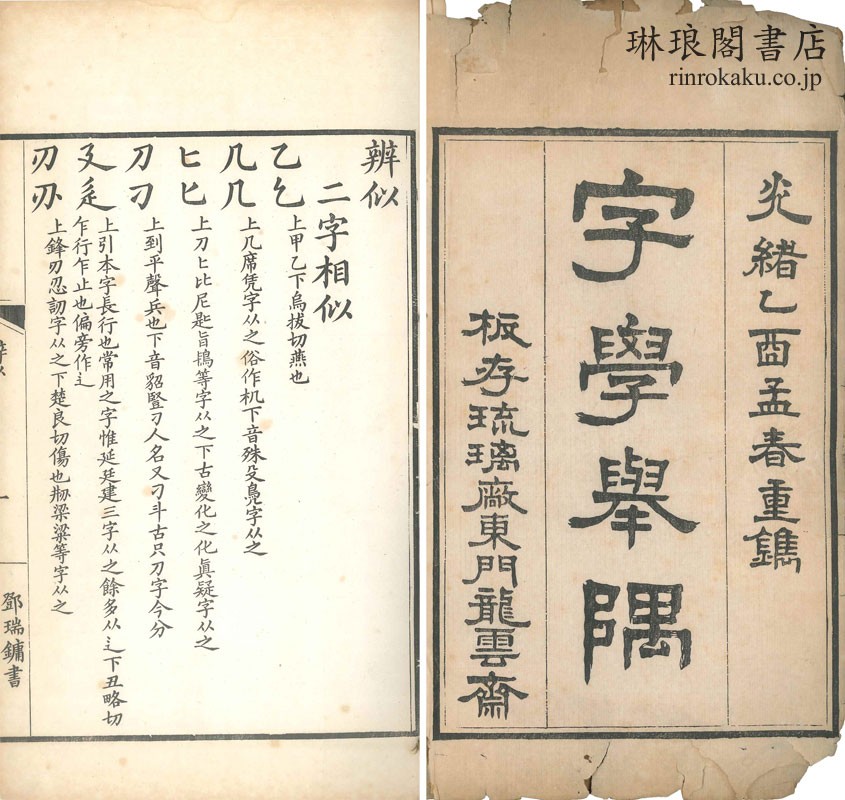 琳琅閣書店
rinrokaku.co.jp
光緒乙酉孟春重鐫
字學舉隅
板存琉璃廠東門龍雲齋
辨似
二字相似
乙乞 上甲乙下烏拔切燕也
几𠘧 上几席凭字从之俗作机下音殊殳鳧字从之
匕𠤎 上刀匕比尼匙旨鴇等字从之下古變化之化眞疑字从之
刀刁 上到平聲兵也下音貂豎刁人名又刁斗古只刀字今分
廴辵 上引本字長行也常用之字惟延廷建三字从之餘多从辶下丑略切
乍行乍止也偏旁作辶
刃刅 上鋒刃忍訒字从之下楚良切傷也刱梁粱等字从之
一
鄧瑞鏞書